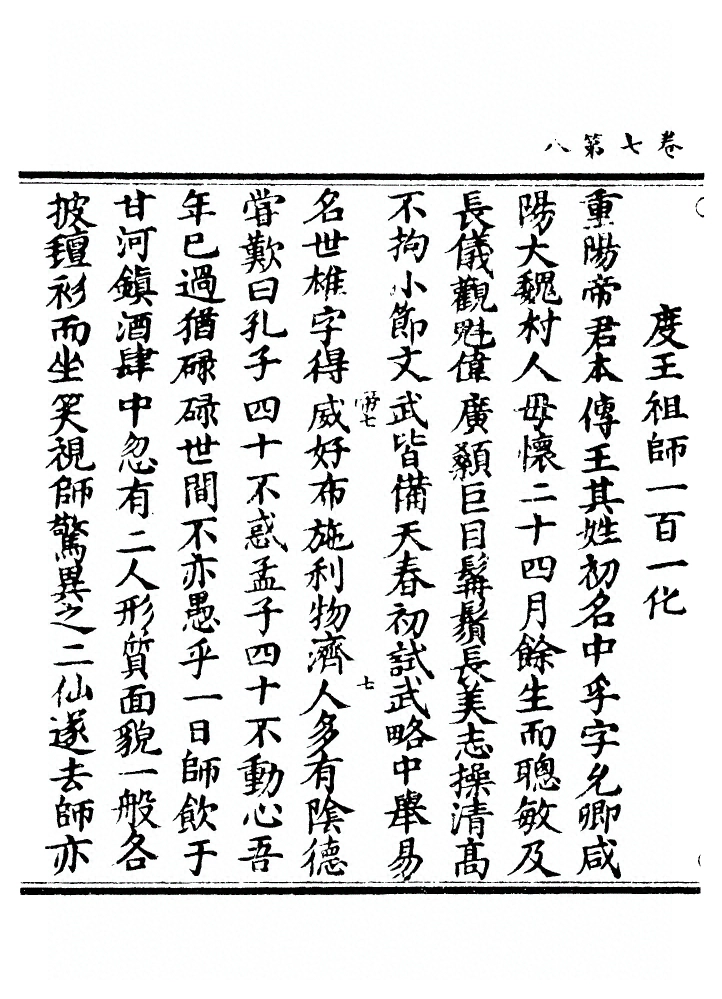 卷七第八
度王祖師一百一化
重陽帝君本傳王其姓初名中孚字允卿咸
陽大魏村人母懷二十四月餘生而聰敏及
長儀觀魁偉廣顙巨目髯鬚長美志操清高
不拘小節文武皆備天春初試武略中舉易
名世雄字得威好布施利物濟人多有陰德
帝七
七
嘗歎曰孔子四十不惑孟子四十不動心吾
年已過猶碌碌世間不亦愚乎一日師飲于
甘河鎮酒肆中忽有二人形質面貌一般各
披氊衫而坐笑視師驚異之二仙遂去師亦